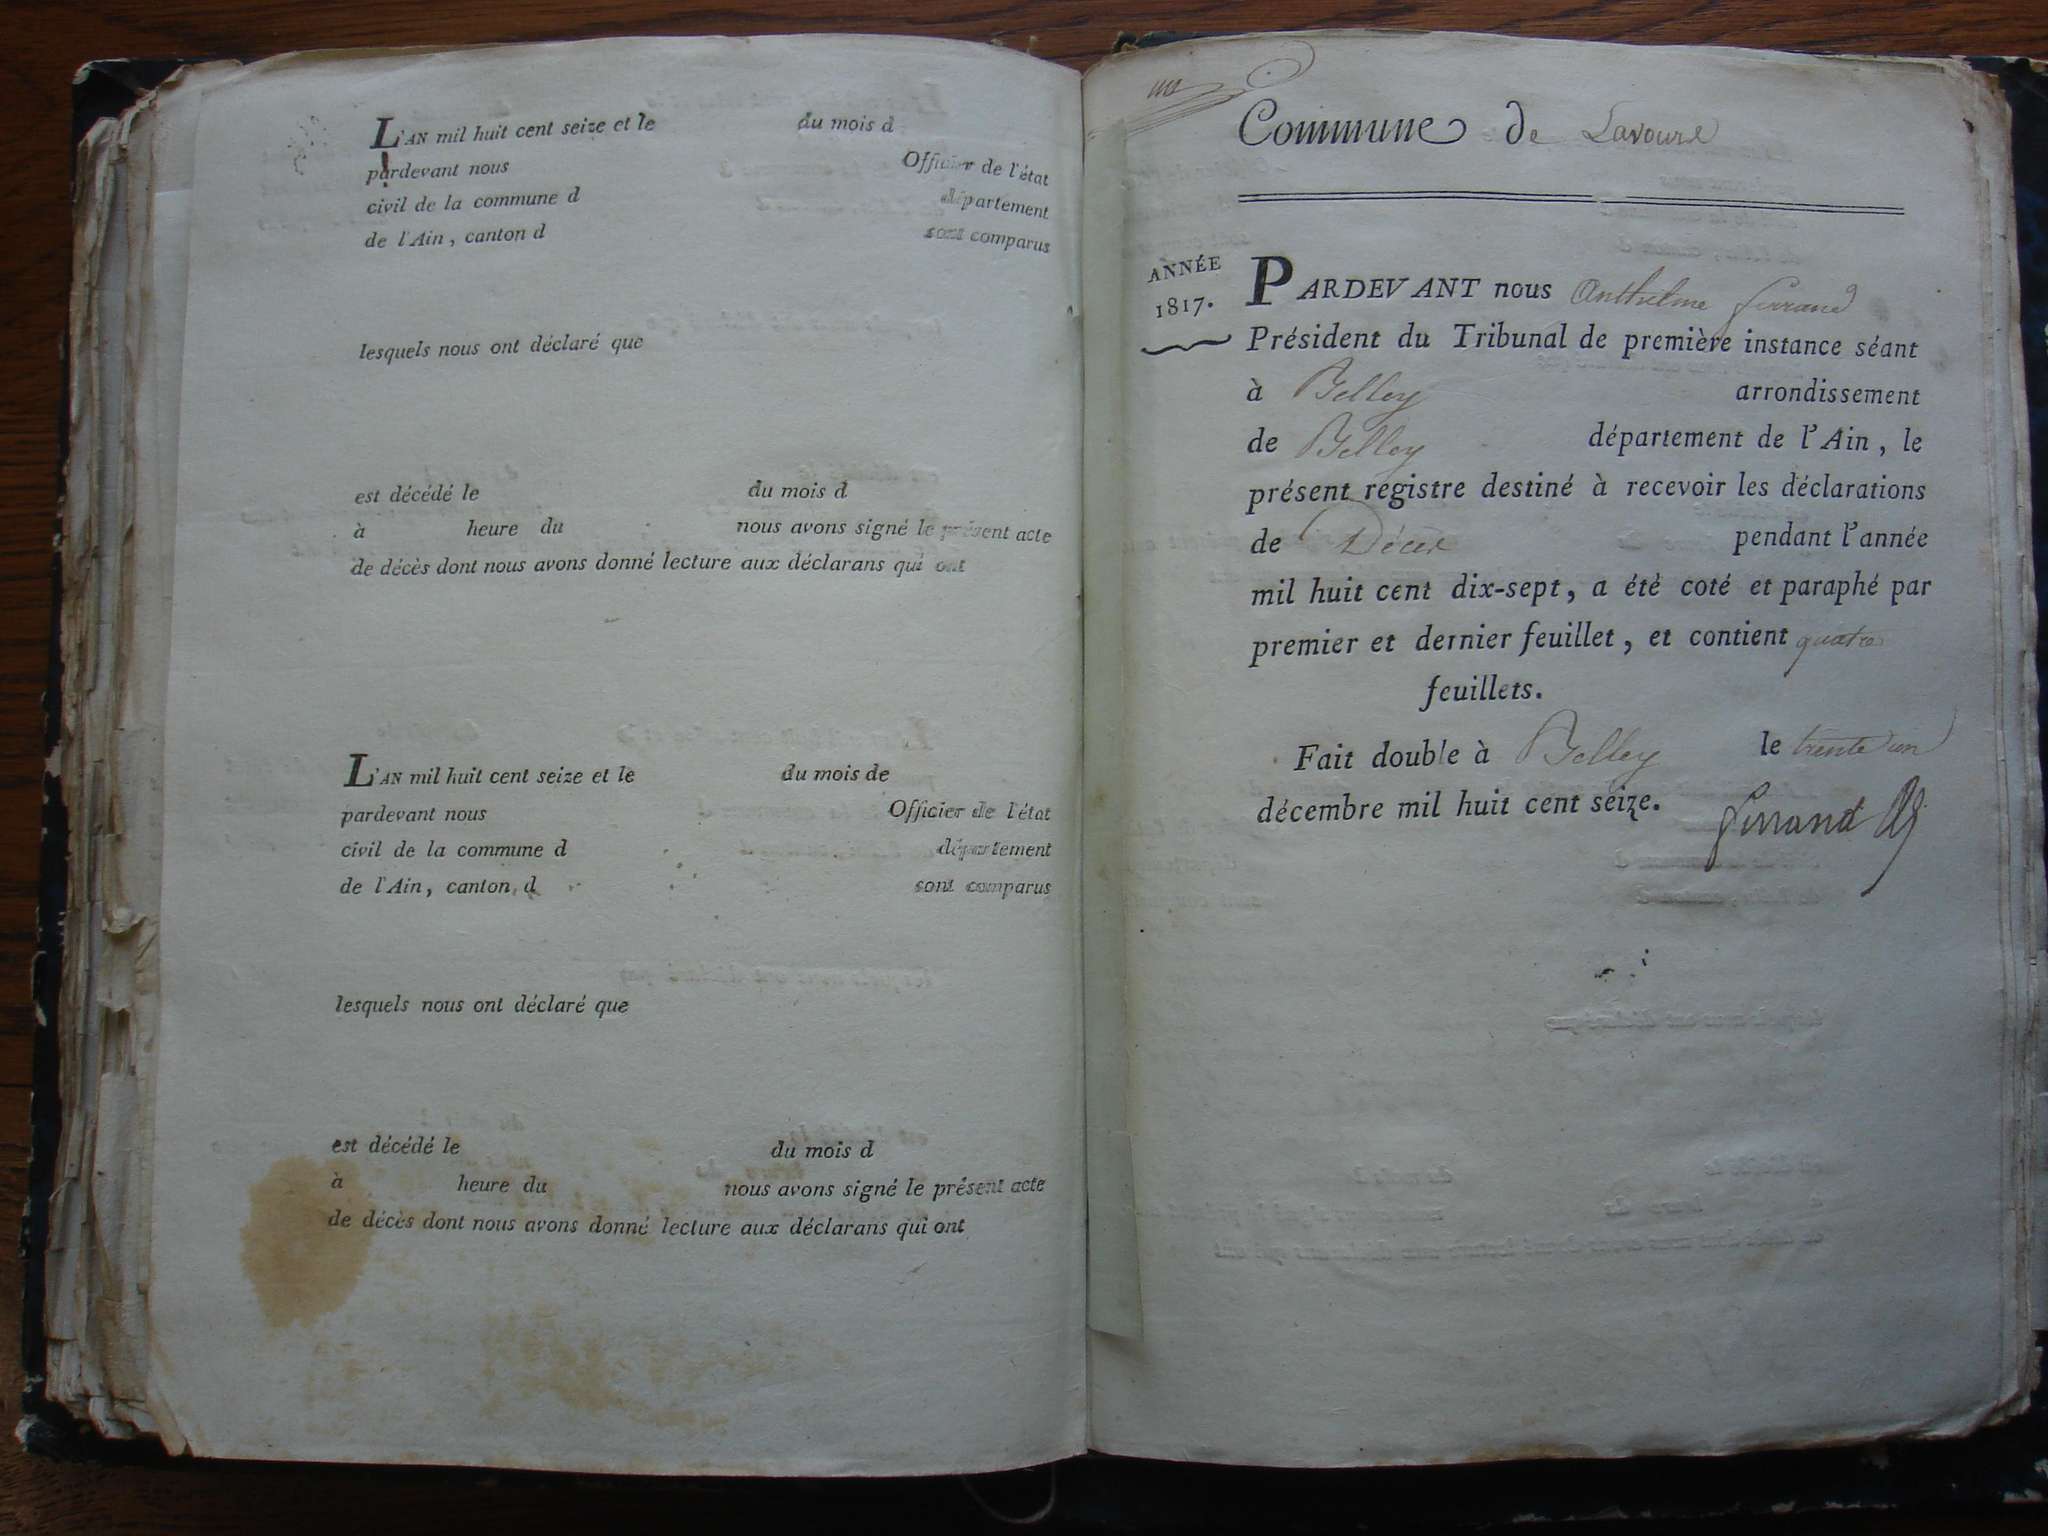 L'AN mil huit cent seize et le du mois d
pardevant nous Officier de l'état
civil de la commune d département
de l'Ain, canton d sont comparus
lesquels nous ont déclaré que
est décédé le du mois d
à heure du nous avons signé le présent acte
de décès dont nous avons donné lecture aux déclarans qui ont
L'AN mil huit cent seize et le du mois de
pardevant nous Officier de l'état
civil de la commune d département
de l'Ain, canton d sont comparus
lesquels nous ont déclaré que
est décédé le du mois d
à heure du nous avons signé le présent acte
de décès dont nous avons donné lecture aux déclarans qui ont
Commune de Lavours
ANNÉE
1817.
PARDEVANT nous Anthelme ferrand
Président du Tribunal de première instance séant
à Belley arrondissement
de Belley département de l'Ain, le
présent registre destiné à recevoir les déclarations
de Décès pendant l'année
mil huit cent dix-sept, a été coté et paraphé par
premier et dernier feuillet, et contient quatre
feuillets.
Fait double à Belley le trente un
décembre mil huit cent seize.
ferrand